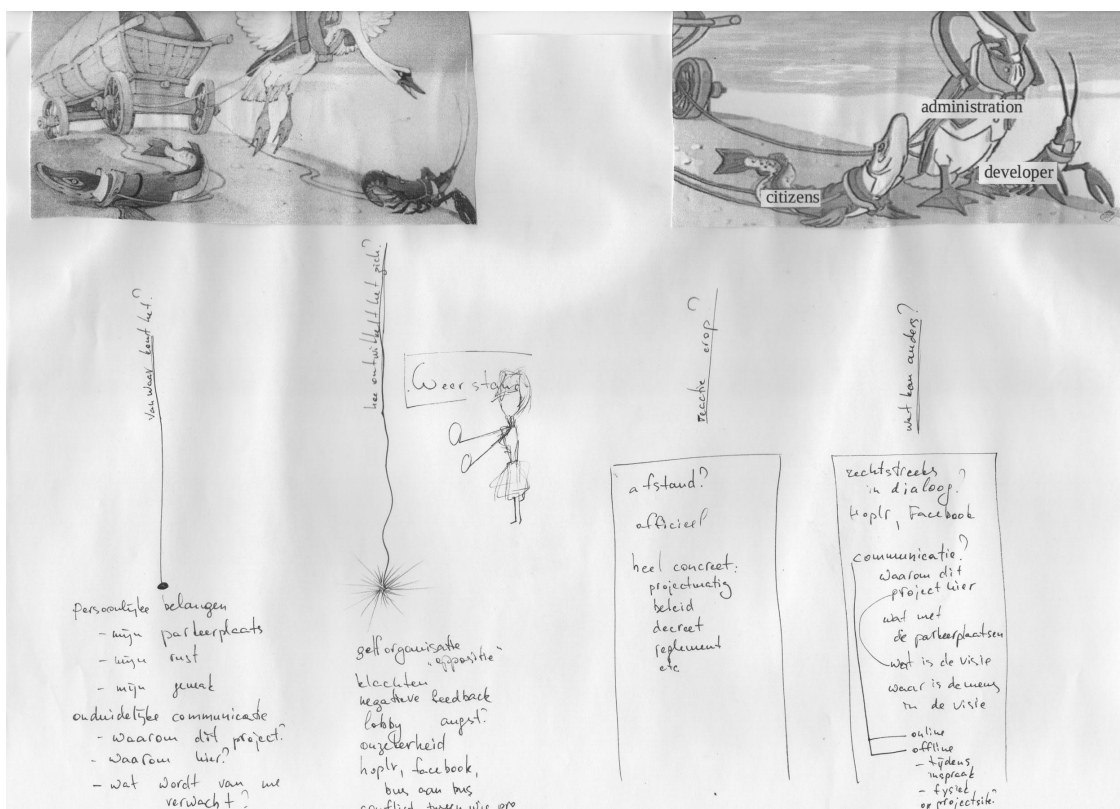 administration
developer
citizens
van waar komt het?
persoonlijke belangen
- mijn parkeerplaats
- mijn rust
- mijn gemak
onduidelijke communicatie
- waarom dit project?
- waarom hier?
- wat wordt van me
verwacht?
hoe ontwikkelt het zich?
Weerstand
zelforganisatie
"oppositie"
klachten
negatieve feedback
lobby angst?
onzekerheid
hoplr, facebook,
bus aan bus
conflict tussen wie pro
reactie erop?
afstand?
officieel
heel concreet:
projectmatig
beleid
decreet
reglement
etc
wat kan anders?
rechtstreeks
in dialoog?
Hoplr, Facebook
communicatie?
waarom dit
project hier
wat met
de parkeerplaatsen
wat is de visie
waar is de mens
in de visie
- online
- offline
- tijdens
inspraak
- fysiek
op projectsite?